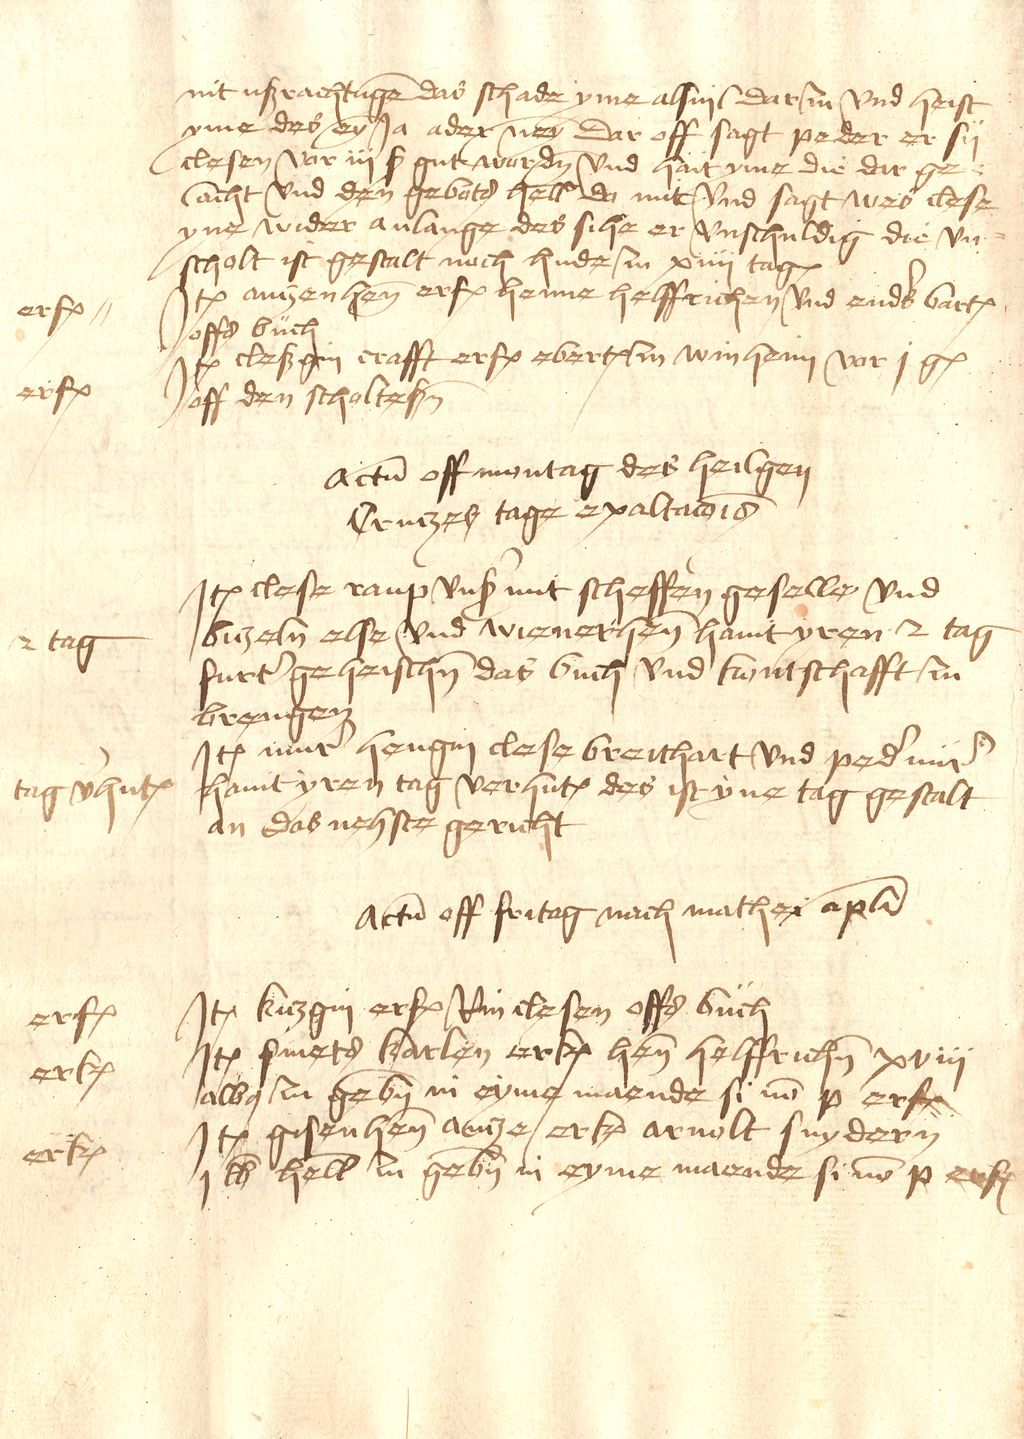 nit ußrachtūge das schade yme alsvil dar zu und heist
yme des ey Ja ader ney Dar off sagt peder er sij
clesen vor iij ß gut wordn̄ und hait yme die dar ge=
acht und den gebots hell͛ do mit und sagt wes clese
yne wider anlange des sihe er unschuldig die un=
scholt ist gestalt noch hude zu xiiij tag
erf Itꝫ antzenhen̄ erf henne helffrichen und endres bartꝫ
offs buch
erf Itꝫ cleßgin crafft erf ebert zu winheim vor j g
off den scholteßn̄
Actū off montag des heilgen
Crutzes tage exaltacōis
Itꝫ clese raup unß͛ mit scheffen geselle und
2 tag butzeln else und wienerhen̄ hant yren 2 tag
furt͛ geheischn̄ das buch und kontschafft zu
brengen
Itꝫ mur͛ hengin clese breithart und ped͛ mur͛
tag v͛hut hant yren tag verhut des ist yne tag gestalt
an das nehste gericht
Actū off fritag nach mathei apl̄i
erf Itꝫ kitzgin erf Rinclesen offs buch
erk Itꝫ smets karlen erk hen̄ helffrichn̄ xviij
alb zu gebn̄ in eyme maende si nō p erf
erk Itꝫ gisenhen̄ antze erk arnolt snydern
j lb hell͛ zu gebn̄ in eyme maende si nō p erf